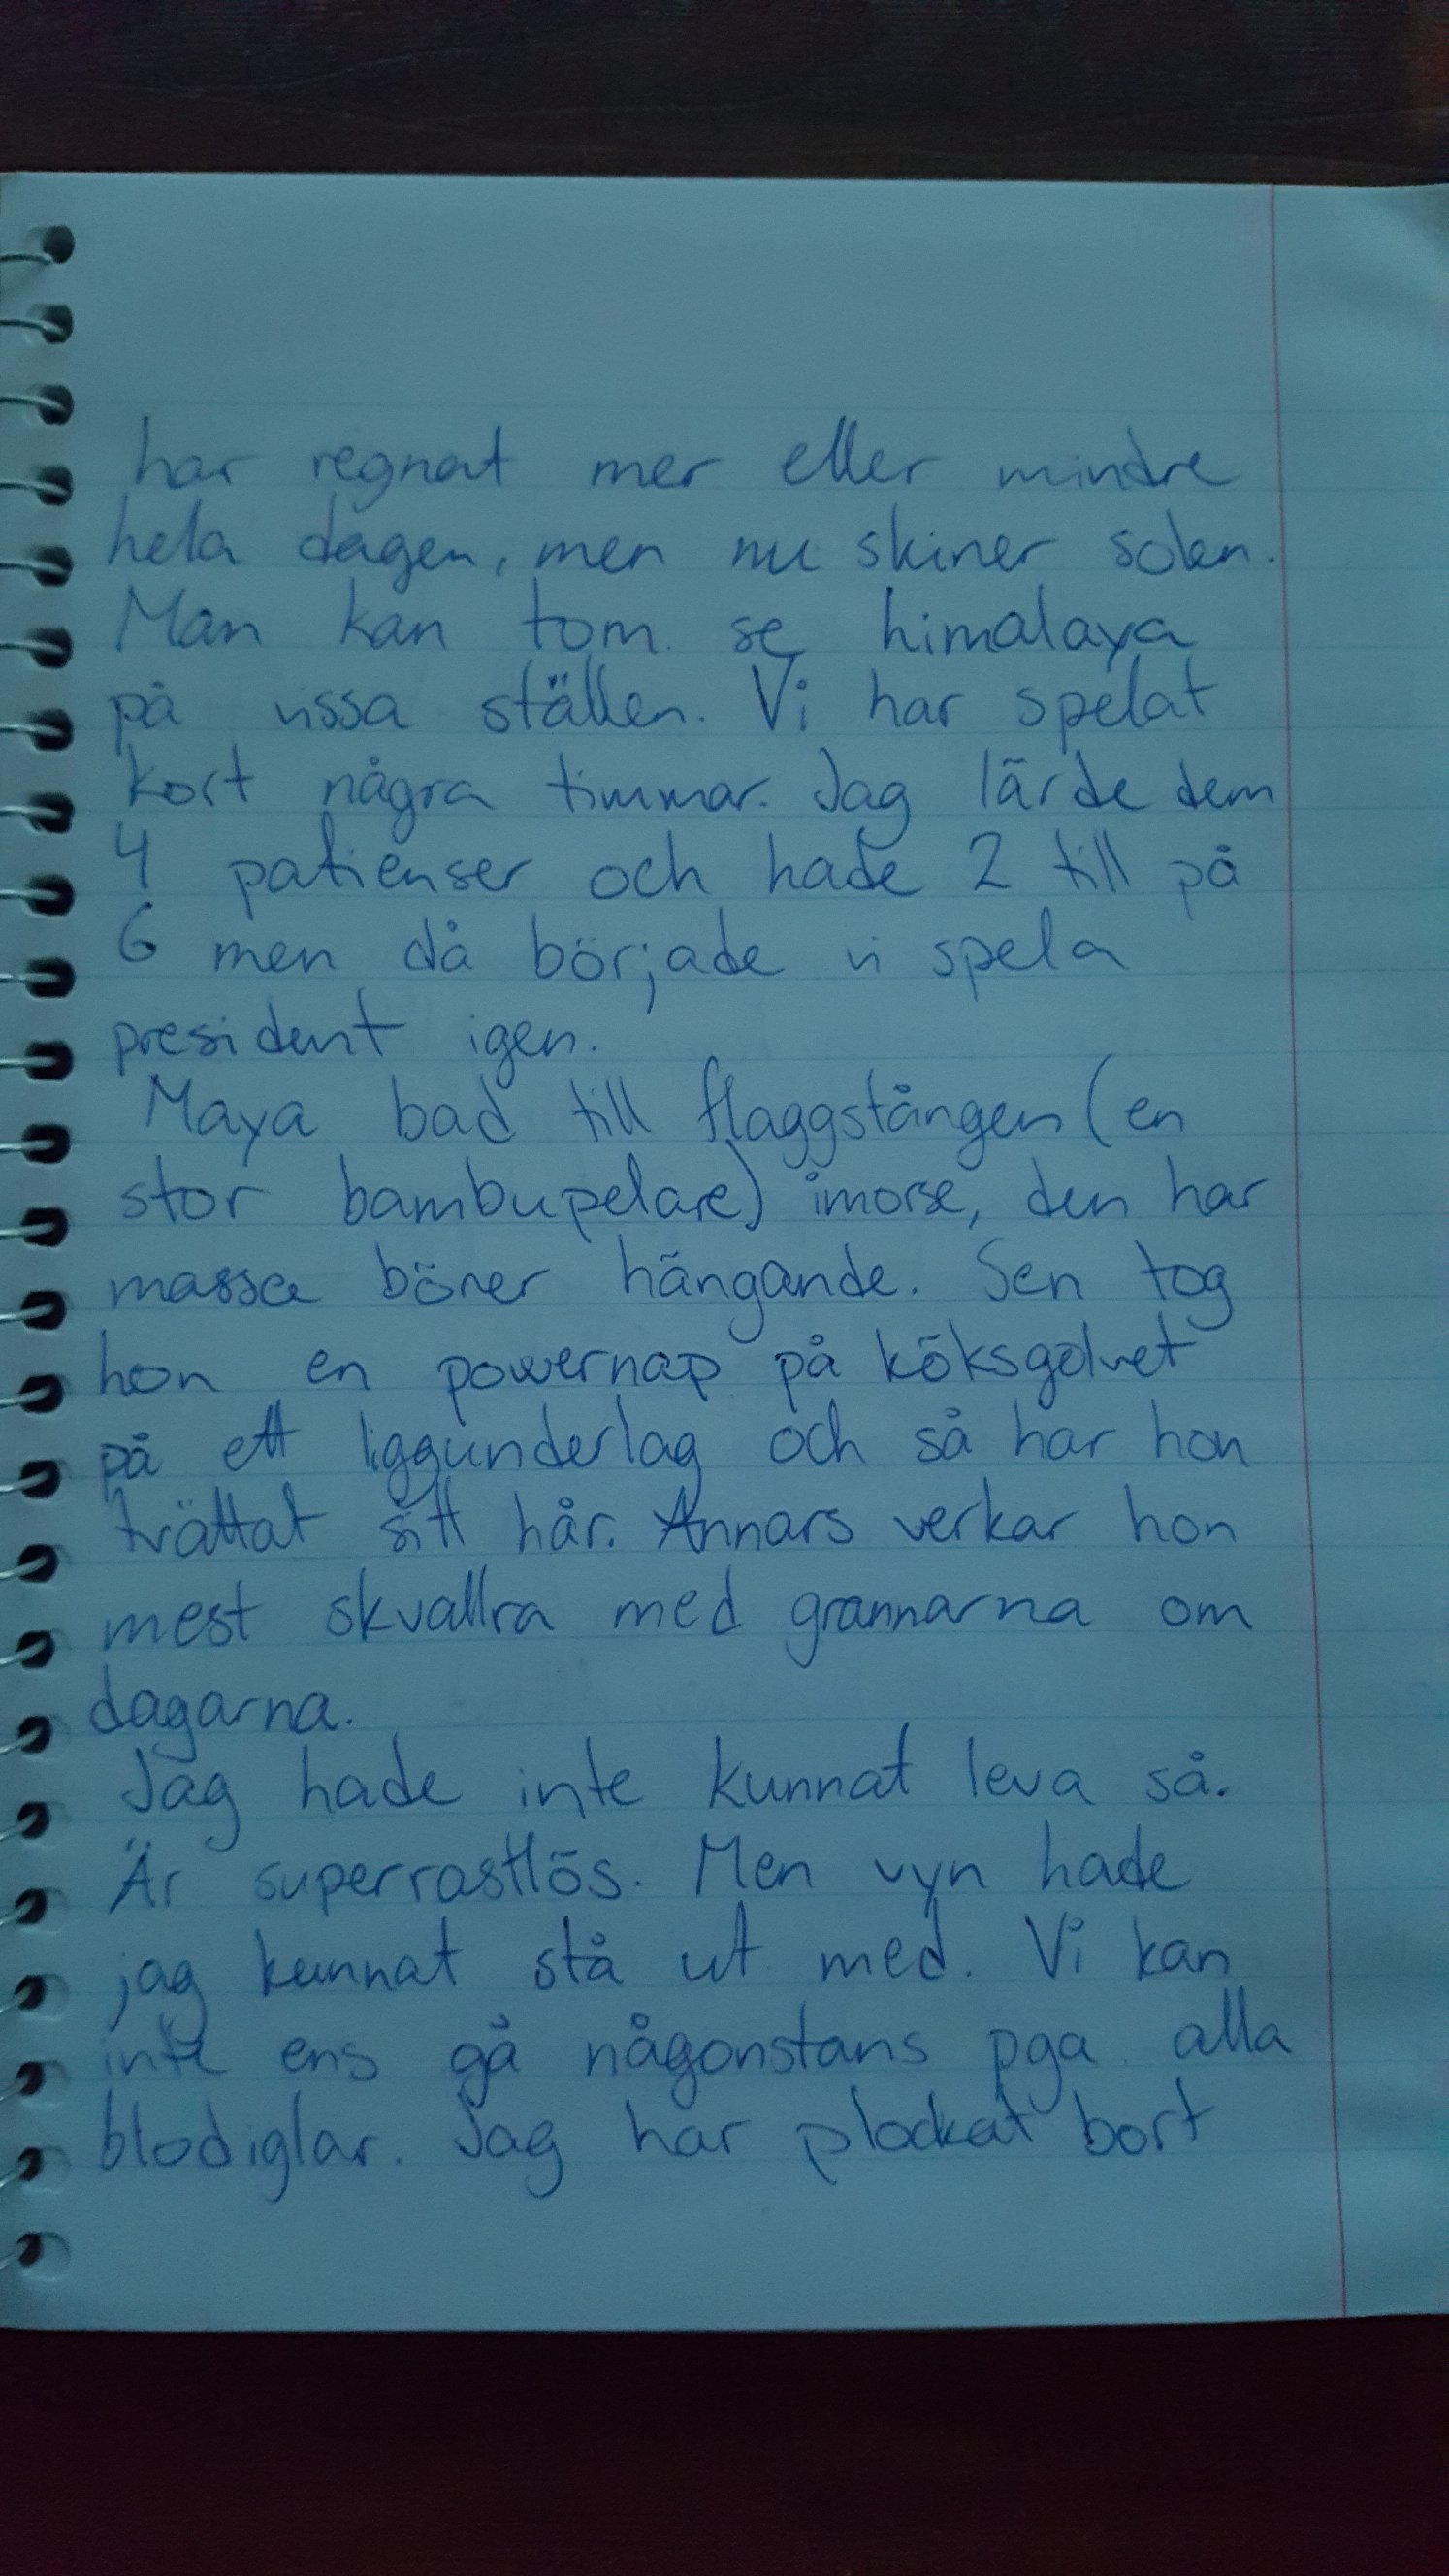 har regnat mer eller mindre
hela dagen, men nu skiner solen.
Man kan tom. se himalaya
på vissa ställen. Vi har spelat
kort några timmar. Jag lärde dem
4 patienser och hade 2 till på
G men då började vi spela
president igen.
Maya bad till flaggstången (en
stor bambupelare) imorse, den har
massa böner hängande. Sen tog
hon en powernap på köksgolvet
på ett liggunderlag och så har hon
tvättat sitt hår. Annars verkar hon
mest skvallra med grannarna om
dagarna.
Jag hade inte kunnat leva så.
Är superrastlös. Men vyn hade
jag kunnat stå ut med. Vi kan
inte ens gå någonstans pga. alla
blodiglar. Jag har plockat bort